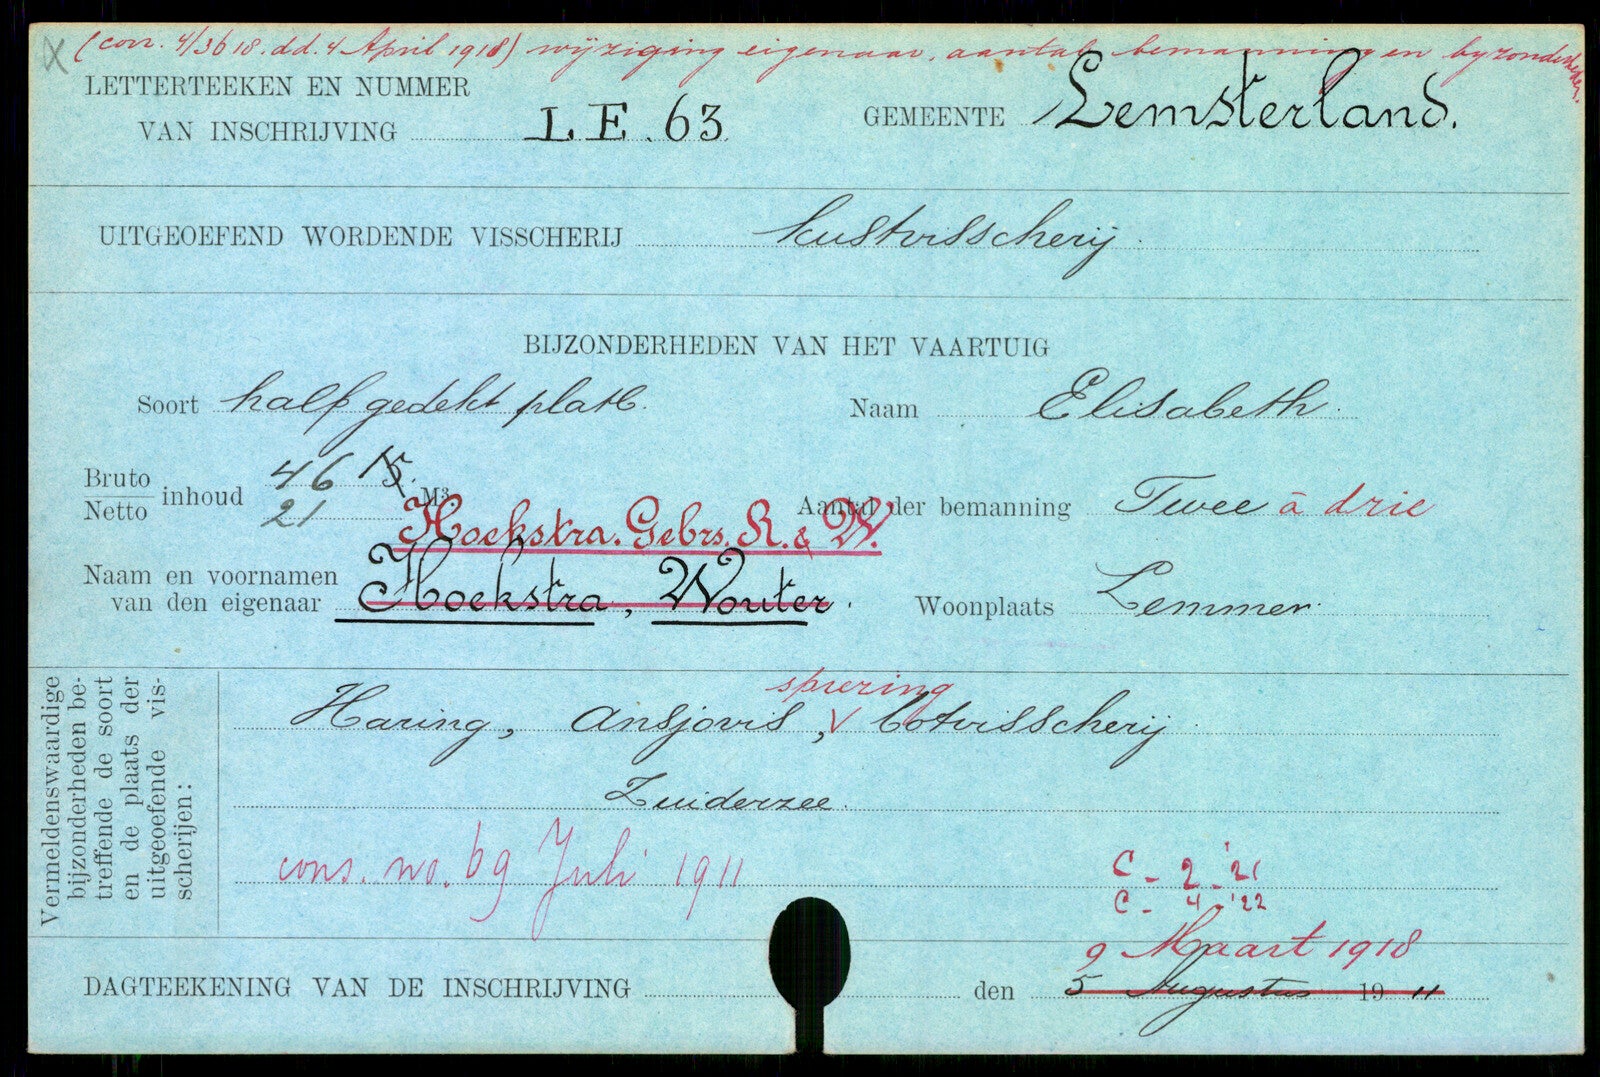 (corr. 4/3618. dd. 4 April 1918) wijziging eigenaar, aantal bemanning en byzonderheden.
LETTERTEEKEN EN NUMMER
VAN INSCHRIJVING L E . 63
GEMEENTE Lemsterland.
UITGEOEFEND WORDENDE VISSCHERIJ kustvisscherij.
BIJZONDERHEDEN VAN HET VAARTUIG
Soort half gedekt platb.
Naam Elisabeth.
Bruto inhoud 46
Netto 21 M³
Aantal der bemanning Twee à drie
Hoekstra. Gebrs. R. & W.
Naam en voornamen
van den eigenaar Hoekstra, Wouter.
Woonplaats Lemmer.
Vermeldenswaardige
bijzonderheden be-
treffende de soort
en de plaats der
uitgeoefende vis-
scherijen:
spiering
Haring, Ansjovis, V botvisscherij
Zuiderzee.
cons. no. 69 Juli 1911
C - 2 - '21
C - 4 - '22
9 Maart 1918
DAGTEEKENING VAN DE INSCHRIJVING den 5 Augustus 19 11